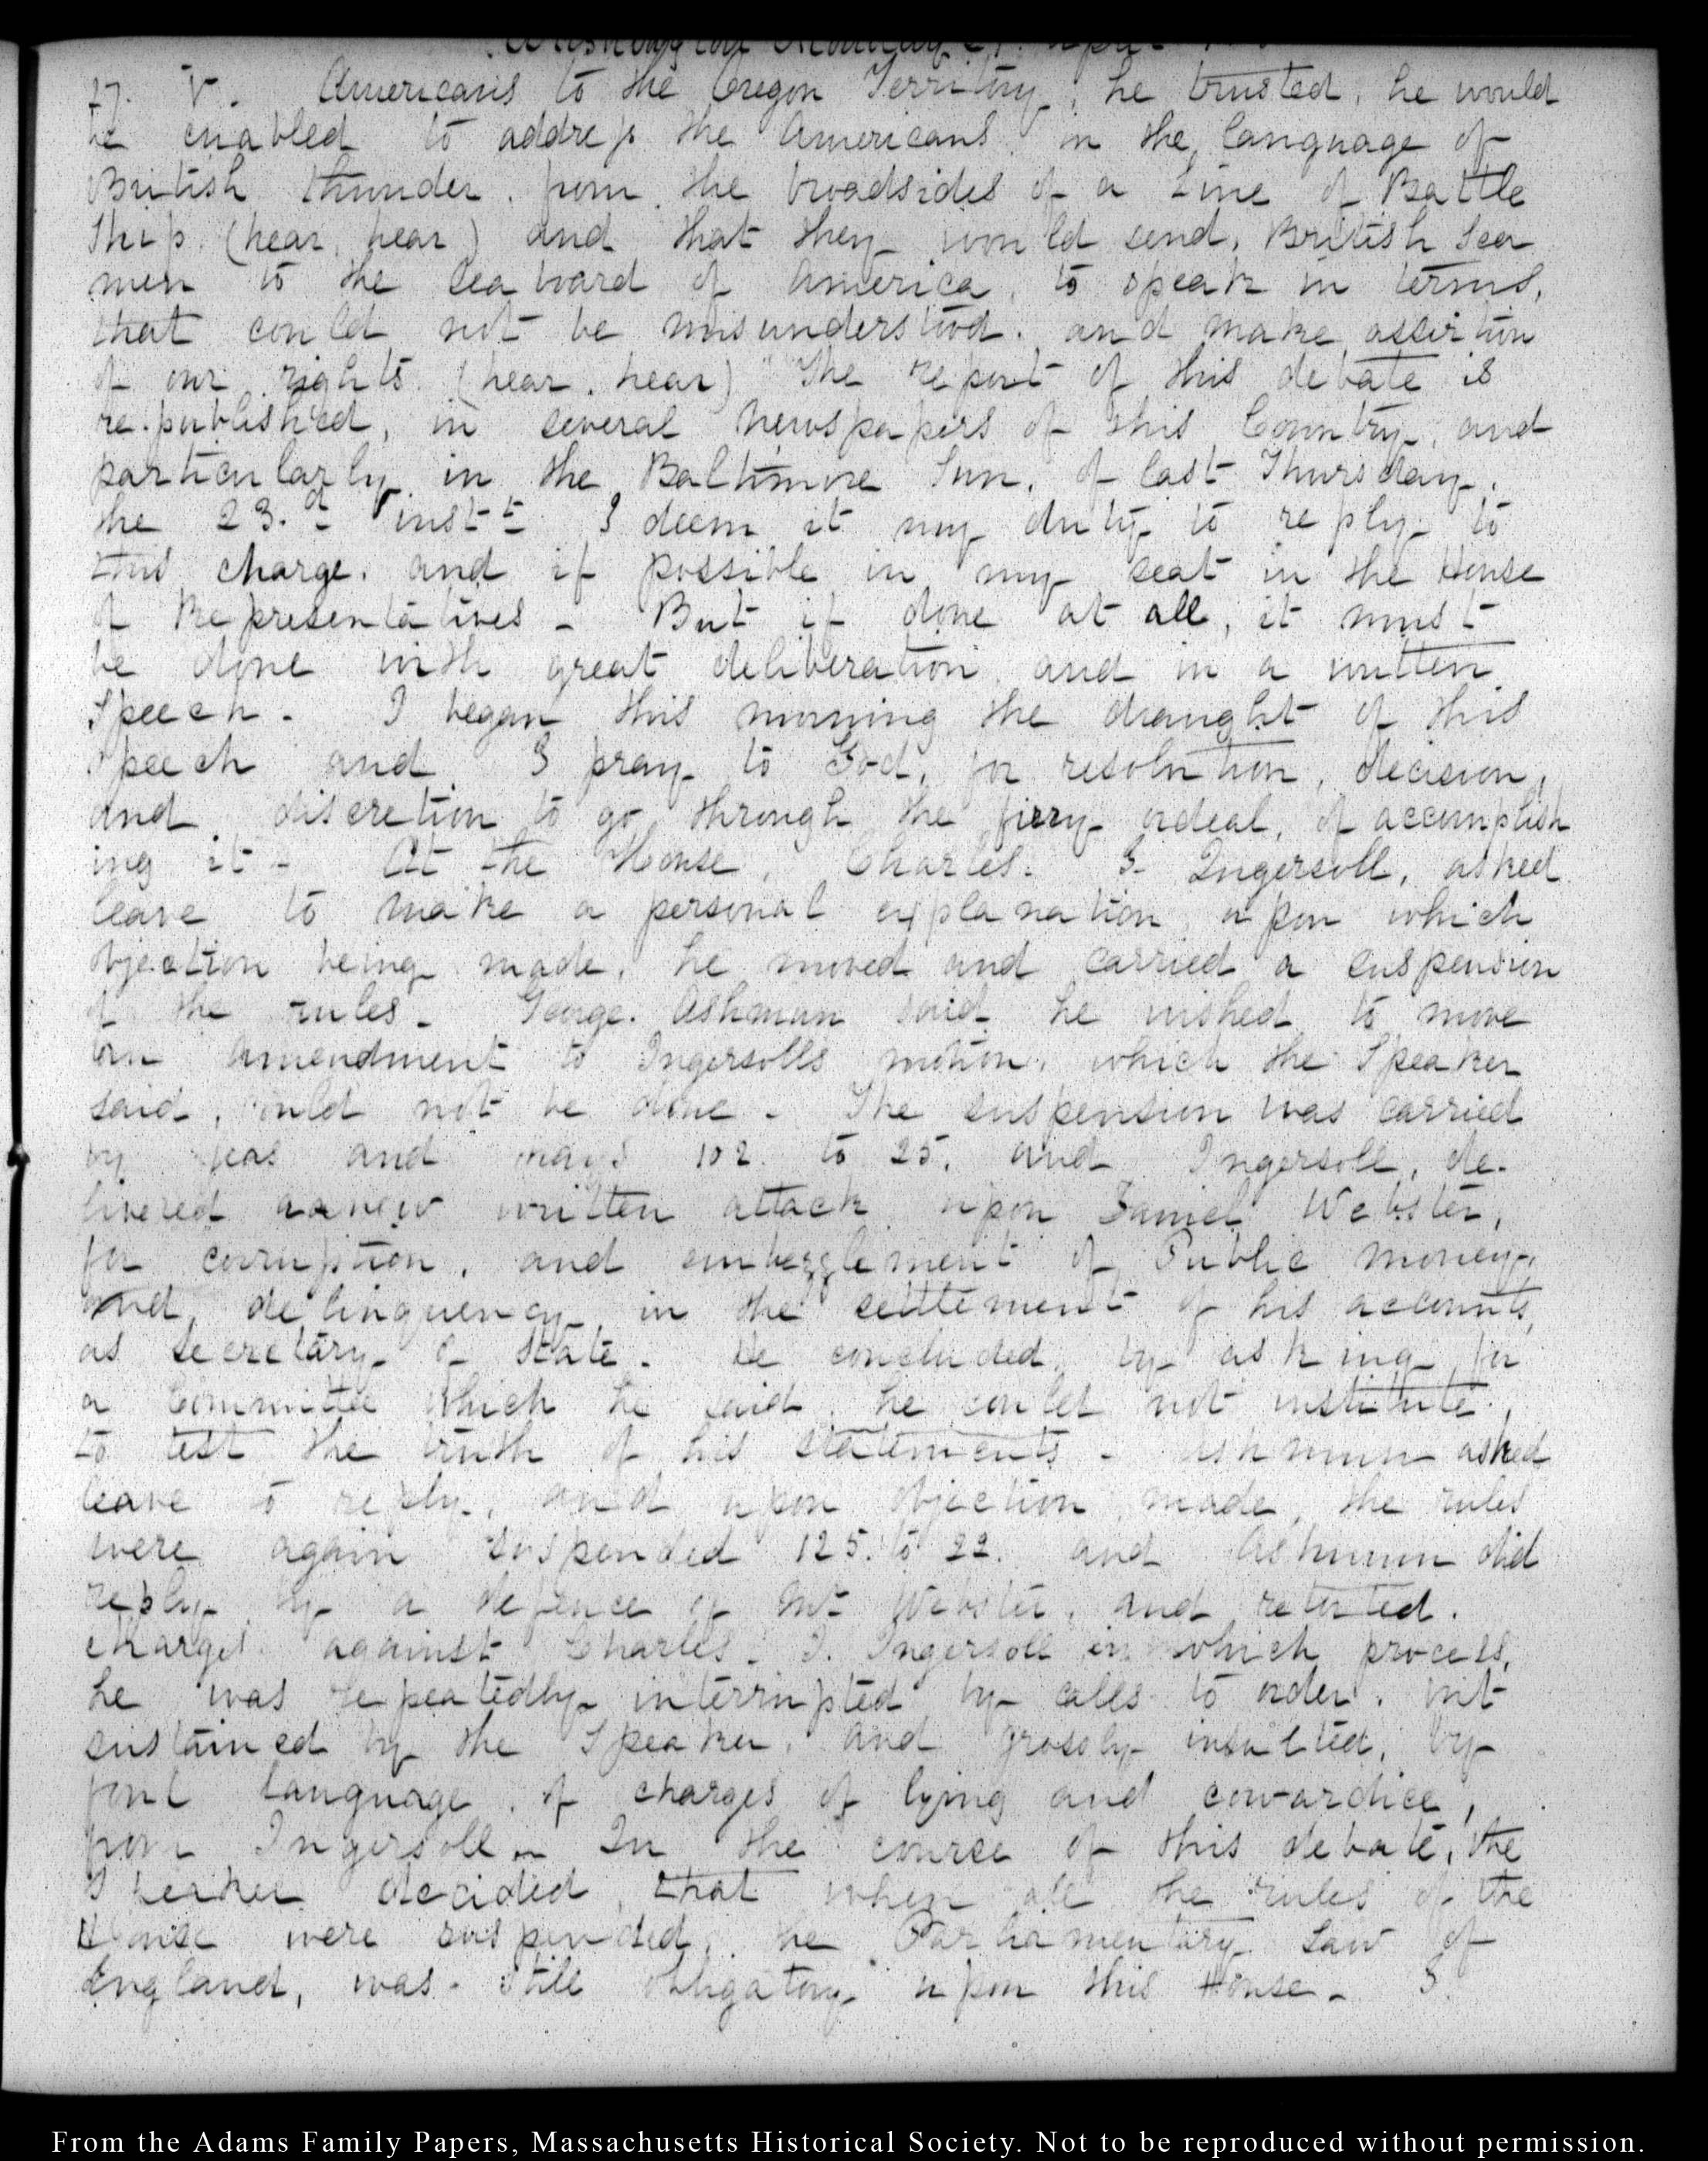 Washington Monday 27. April
27. V. Americans to the Oregon Territory, he trusted, he would
be enabled to address the Americans in the language of
British thunder, from the broadsides of a Line of Battle
Ship. (hear, hear) and that they would send, British Sea
men to the Sea board of America, to speak in terms,
that could not be misunderstood. and make assertion
of our rights. (hear, hear)" The report of this debate is
re-published, in several Newspapers of this Country, and
particularly in the Baltimore Sun, of last Thursday,
the 23.d instt. I deem it my duty to reply to
this charge. and if possible in my seat in the House
of Representatives - But if done at all, it must
be done with great deliberation, and in a written
Speech. I began this morning the draught of this
Speech and I pray to God, for resolution, decision,
and discretion to go through the fiery ordeal, of accomplish
ing it - At the House, Charles. J. Ingersoll, asked
leave to make a personal explanation, upon which
objection being made, he moved and carried a suspension
of the rules - George. Ashmun said he wished to move
an amendment to Ingersolls motion, which the Speaker
said, could not be done - The suspension was carried
by yeas and nays 102 to 25. and Ingersoll, de-
livered a new written attack upon Daniel Webster,
for corruption, and embezzlement of Public money,
and, delinquency in the settlement of his accounts,
as Secretary of State - He concluded, by asking for
a Committee which he said, he could not institute,
to test the truth of his statements - Ashmun asked
leave to reply, and upon objection made, the rules
were again suspended 125. to 22. and Ashmun did
reply by a defence of Mr Webster, and retorted.
charges against Charles. J. Ingersoll in which process,
he was repeatedly interrupted by calls to order. but
sustained by the Speaker, and grossly insulted, by
foul language, of charges of lying and cowardice,
from Ingersoll - In the course of this debate, the
Speaker decided, that when all the rules of the
House were suspended, the Parliamentary Law of
England, was still obligatory upon this House - I.
From the Adams Family Papers, Massachusetts Historical Society. Not to be reproduced without permission.